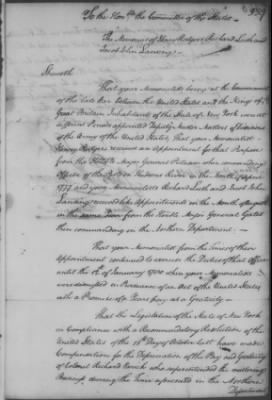 To the Honble the Committee of the States
The Memorial of Henry Rutgers Richard Lush and
Jacob John Lansing
Sheweth
That your Memorialists being at the Commencement
of the late War between the United States and the King of
Great Britain Inhabitants of the State of New York were at
different Periods appointed Deputy Muster Masters of Divisions
of the Army of the United States, that your Memorialist
Henry Rutgers received an appointment for that Purpose
from the Honble Major General Putnam when commanding
Officer of the Posts on Hudsons River in the Month of
1777 and your Memorialists Richard Lush and Jacob John
Lansing received like Appointments on the Month of August
in the same Year from the Honble Major General Gates
then commanding in the Northern Department
That your Memorialists from the Times of their
Appointment continued to exercise the Duties of that Office
until the of January 1780 when your Memorialists
were deranged in Pursuance of an Act of the United States
with a Promise of a Years pay as a Gratuity
That the Legislature of the State of New York
in Compliance with a Recommendatory Resolution of the
United States of the 18th Day of October last have made
Compensation for the Depreciation of the Pay and Gratuity
of Colonel Richard Varick who superintended the mustering
during the Time aforesaid in the Northern
Department